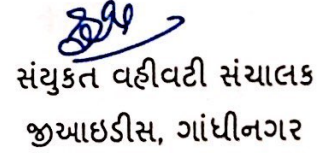 સંયુકત વહીવટી સંચાલક
જીઆઇડીસ, ગાંધીનગર